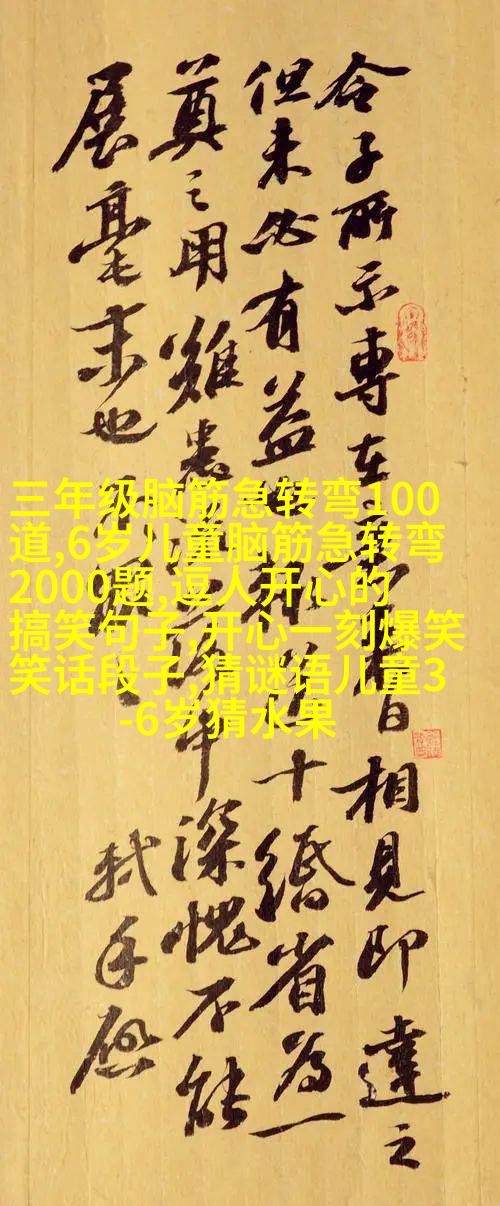 子所示專在日相見即達之
但未必有益十緡省為一
奠之用雖甚中深愧不能
展毫末也軾手啟
三年级脑筋急转弯100
道,6岁儿童脑筋急转弯
2000题,逗人开心的
搞笑句子,开心一刻爆笑
笑话段子,猜谜语儿童3
-6岁猜水果